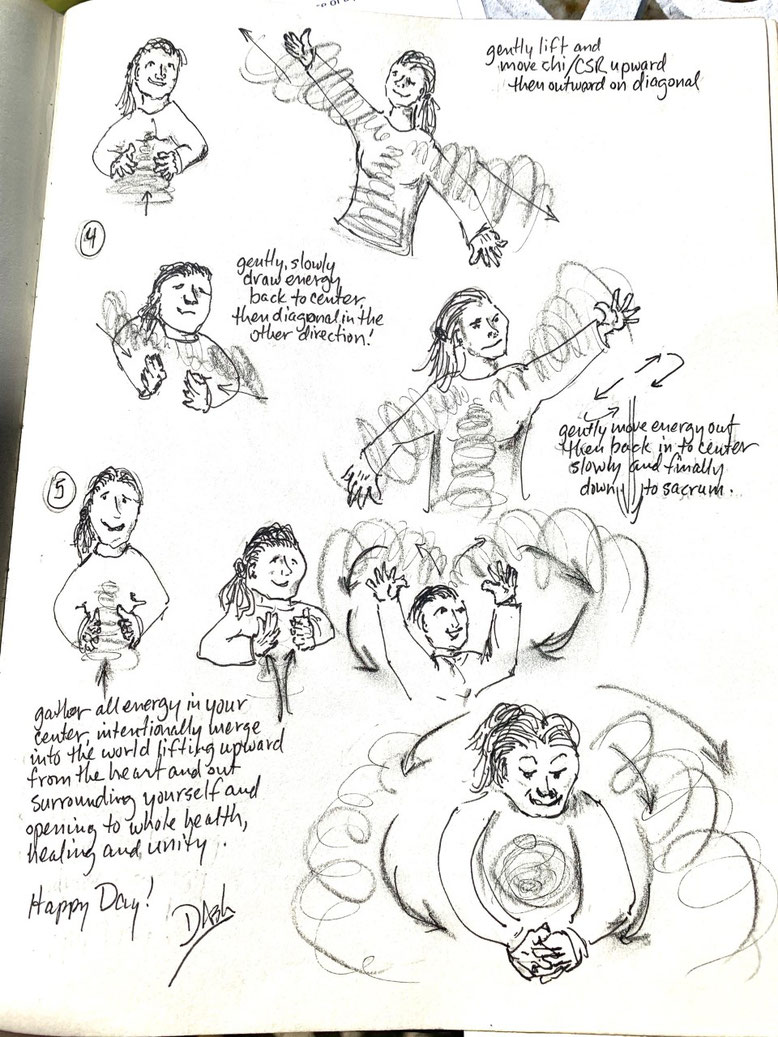 gently lift and
move chi/CSR upward
then outward on diagonal
4
gently, slowly
draw energy
back to center,
then diagonal in the
other direction!
gently move energy out
then back in to center
slowly and finally
down to sacrum.
5
gather all energy in your
center, intentionally merge
into the world lifting upward
from the heart and out
surrounding yourself and
opening to whole health,
healing and unity.
Happy Day!